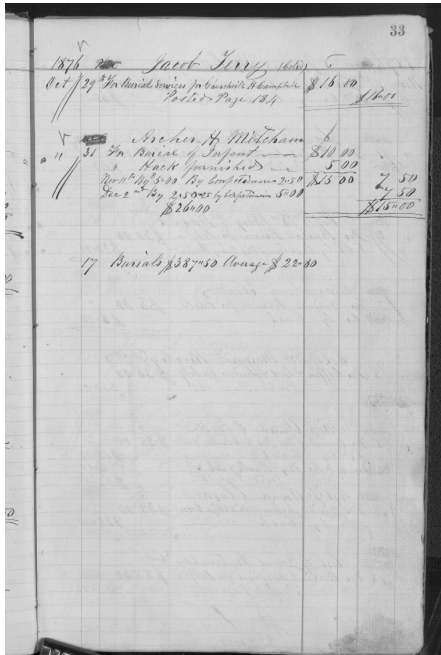 33
1876 Jacob Terry (Cold)
Oct 29th For Burial Services for Campbell $16 00
Posted Page 184 $16=00
Archer H Mitcham
" 31 For Burial of Infant $10 00
" Hack furnished 5 00
Nov 11th By $5=00 By Compotation 2=50 $15 00 7 50
Dec 2nd By 2,50=25 by Compotation 5=00 7 50
$26=00 $15=00
17 Burials $387=50 Average $22=80